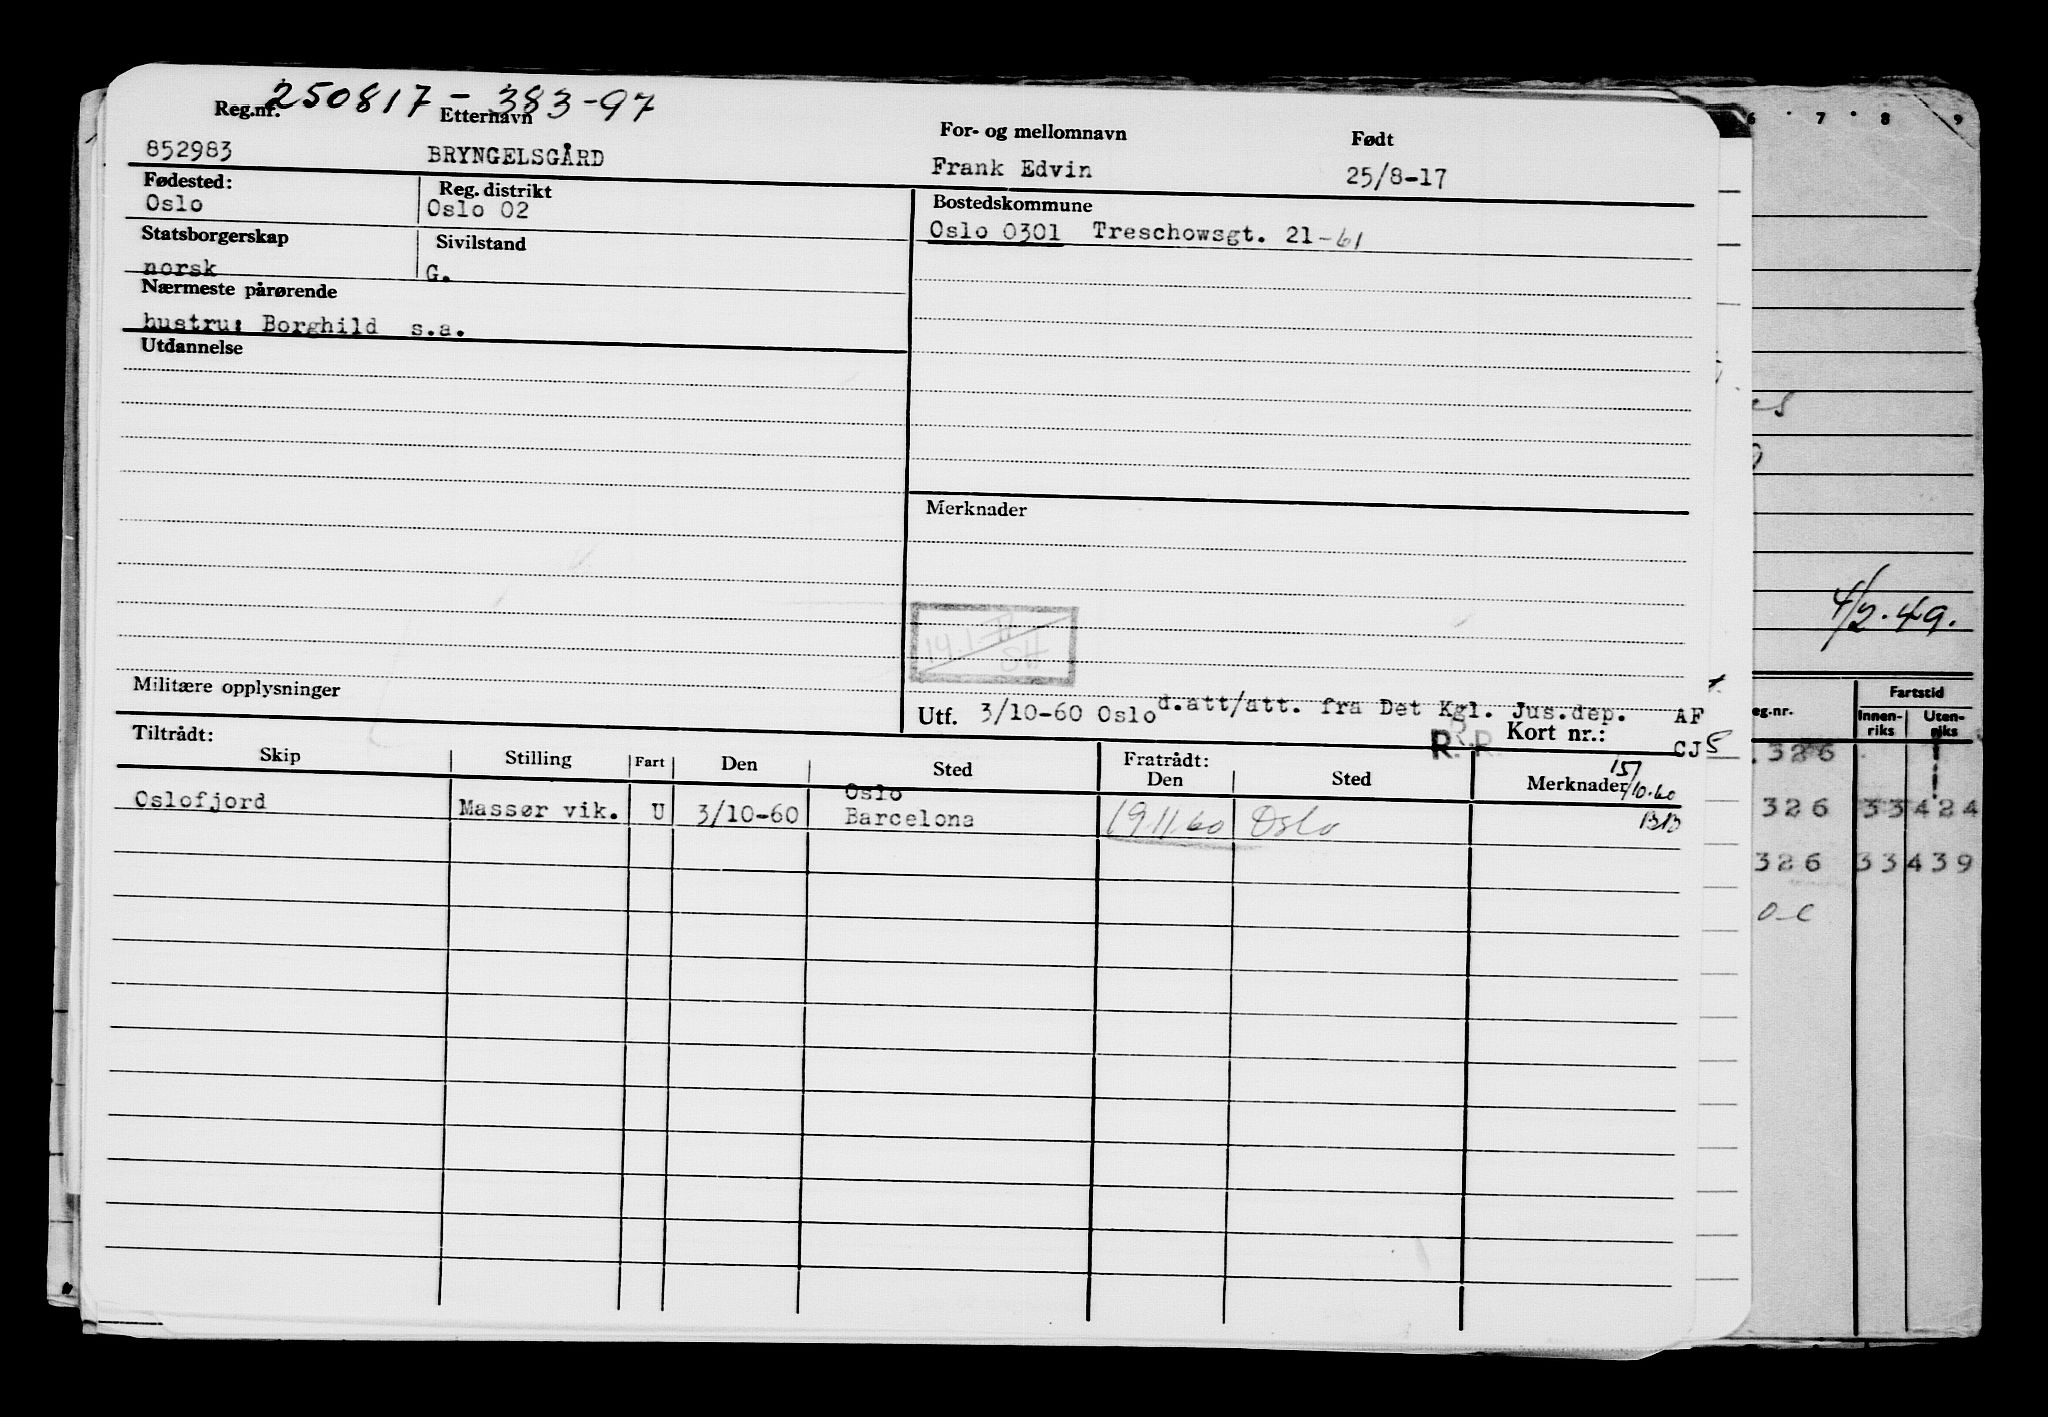 250817 - 383-97
Reg.nr. Etternavn For- og mellomnavn Født
852983 BRYNGELSGÅRD Frank Edvin 25/8-17
Fødested: Reg. distrikt Bostedskommune
Oslo Oslo 02 Oslo 0301 Treschowsgt. 21-61
Statsborgerskap Sivilstand
norsk G.
Nærmeste pårørende
hustru: Borghild s.a.
Utdannelse
Merknader
14.1
SH
Militære opplysninger
Utf. 3/10-60 Oslo d.att/att. fra Det Kgl. Jus.dep. AF
R.R. Kort nr.: CJ5
Tiltrådt: Fratrådt:
Skip Stilling Fart Den Sted Den Sted Merknader 15/10.60
Oslofjord Massør vik. U 3/10-60 Oslo
Barcelona 19.11.60 Oslo
6 7 8 9
4/2.49.
Fartstid
eg.nr. Innen-riks Uten-riks
326
326 33 424
326 33 439